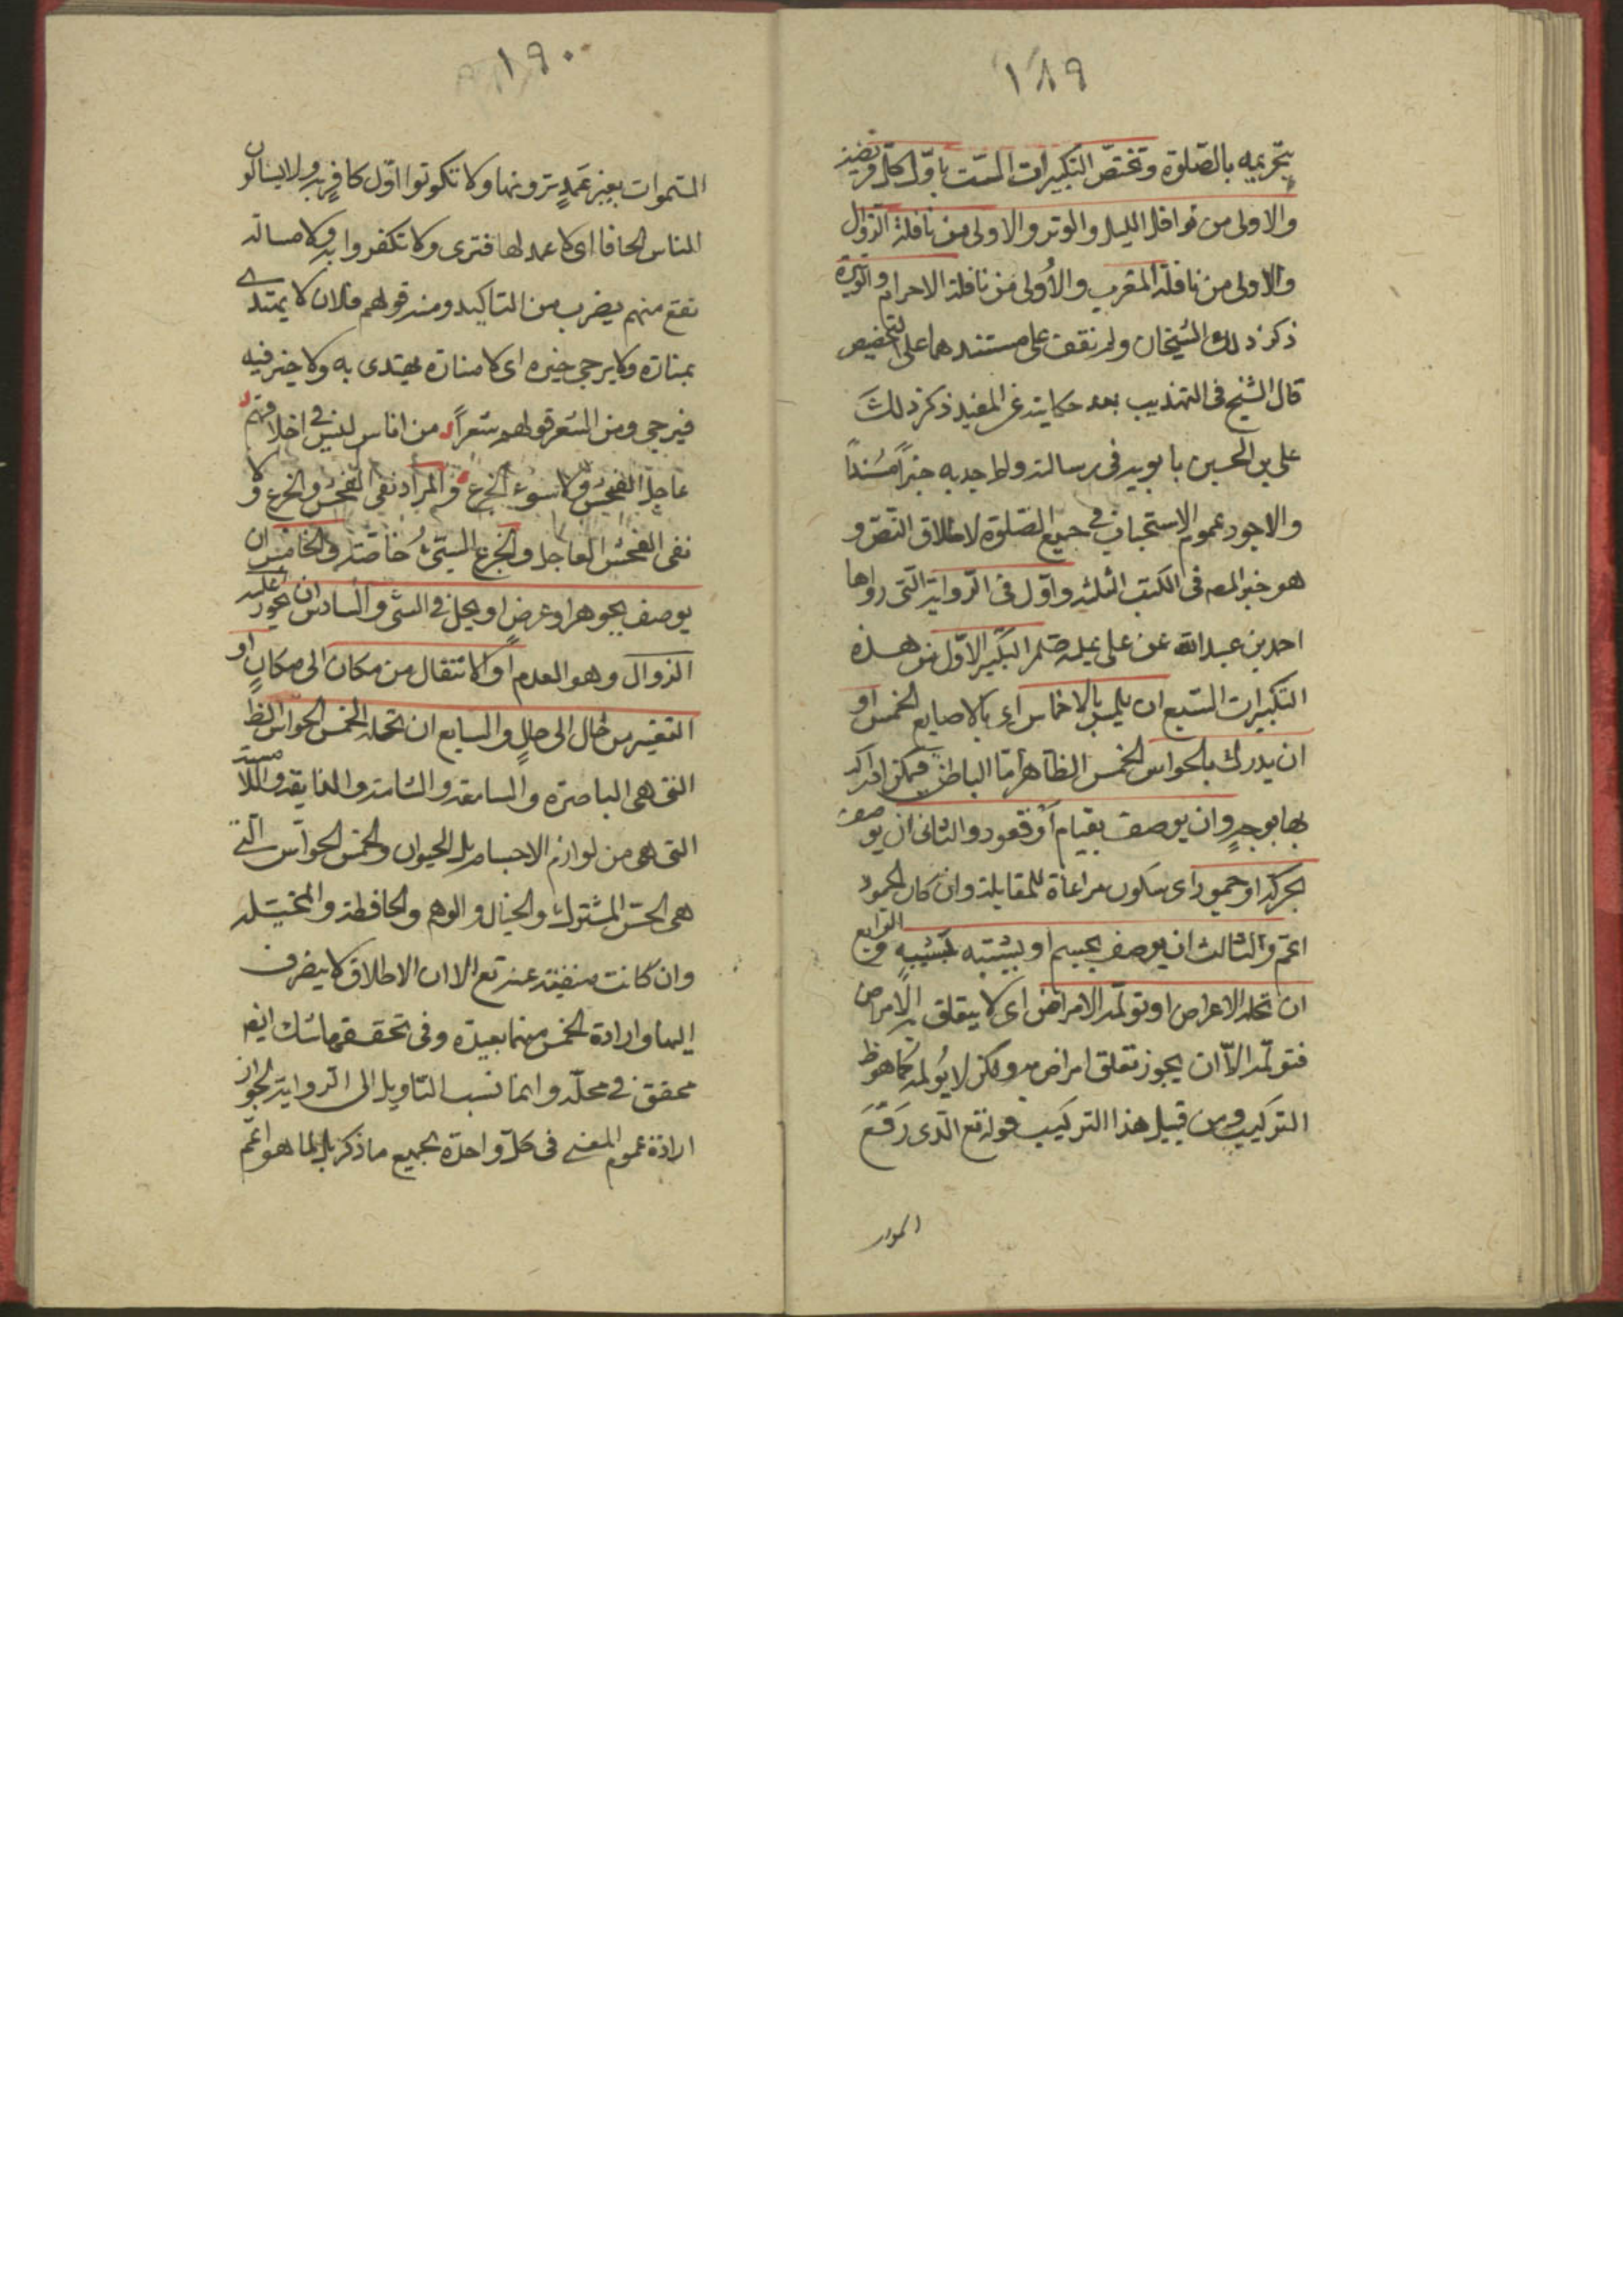 ١٨٩
بتحريمه بالصّلوة وتختصّ التكبيرات الستّ باوّل كلّ فريضة
والاولى من نوافل الليل والوتر والاولى من نافلة الزوال
والاولى من نافلة المغرب والأولى من نافلة الاحرام والوتيرة
ذكر ذلك الشيخان ولم نقف على مستندهما على التخصيص
قال الشيخ فى التهذيب بعد حكايته عن المفيد ذكر ذلك
على بن الحسين بابويه فى رسالته ولم اجد به خبراً مسنداً
والاجود عموم الاستحباب فى جميع الصّلوة لاطلاق النصّ و
هو خبر المص فى الكتب الثلثه واوّل فى الرواية الّتى رواها
احمد بن عبد الله عن على عليه صلم التكبير الاوّل من هذه
التكبيرات السّبع ان يلمس بالاخماس اى بالاصابع الخمس او
ان يدرك بالحواس الخمس الظاهر امّا الباطن فيمكن ادراكه
بها بوجهٍ وان يوصف بقيام أو قعود والثانى ان يوصف
بحركة او جمود اى سكون مراعاة للمقابلة وان كان الجمود
اعمّ والثالث ان يوصف بجسم او يشبه بشبيهٍ والرابع
ان تحله الاعراض او تولمه الامراض اى لا يتعلق به الامراض
فتولمه الاّ ان يجوز تعلق امراض به ولكن لا يُولمه كما هو ظ
التركيب ومن قبيل هذا التركيب قوله تع الّذى رَفَعَ
السموا
١٩٠
السّموات بغير عَمَدٍ ترونها ولا تكونوا اوّل كافرٍ به ولا يسالون
الناس الحافا اى لا عمد لها فترى ولا تكفروا به ولا مسالة
تقع منهم يضرب من التاكيد ومنه قولهم فلان لا يهتدى
بمناره ولا يرجى خيره اى لا مناره يهتدى به ولا خير فيه
فيرجى ومن الشعر قولهم شعراً من اناس ليس فى اخلاقهم
عاجل الفحش ولا سوء الجزع والمراد نفى الفحش والجزع لا
نفى الفحش العاجل والجزع السيّئ خاصّته والخامس ان
يوصف بجوهر او عرضٍ او يحل فى الشئ والسادس ان يجوز عليه
الزوال وهو العدم او الانتقال من مكان الى مكانٍ او
التغيير من حال الى حالٍ والسابع ان تحله الخمس الحواس الظ
التى هى الباصرة والسامعة والشامة والذايقة واللامسة
التى هى من لوازم الاجسام بل الحيوان والخمس الحواس الّتى
هى الحسّ المشترك والخيال والوهم والحافظة والمتخيّله
وان كانت منفيّة عنه تع الا ان الاطلاق لا ينصرف
اليها وارادة الخمس منهما بعيده وفى تحققهما شك ايضا
محقق فى محلّه وانما نسب التاويل الى الرواية لجواز
ارادة عموم المعنى فى كلّ واحدة بجميع ما ذكر بل لما هو اعمّ